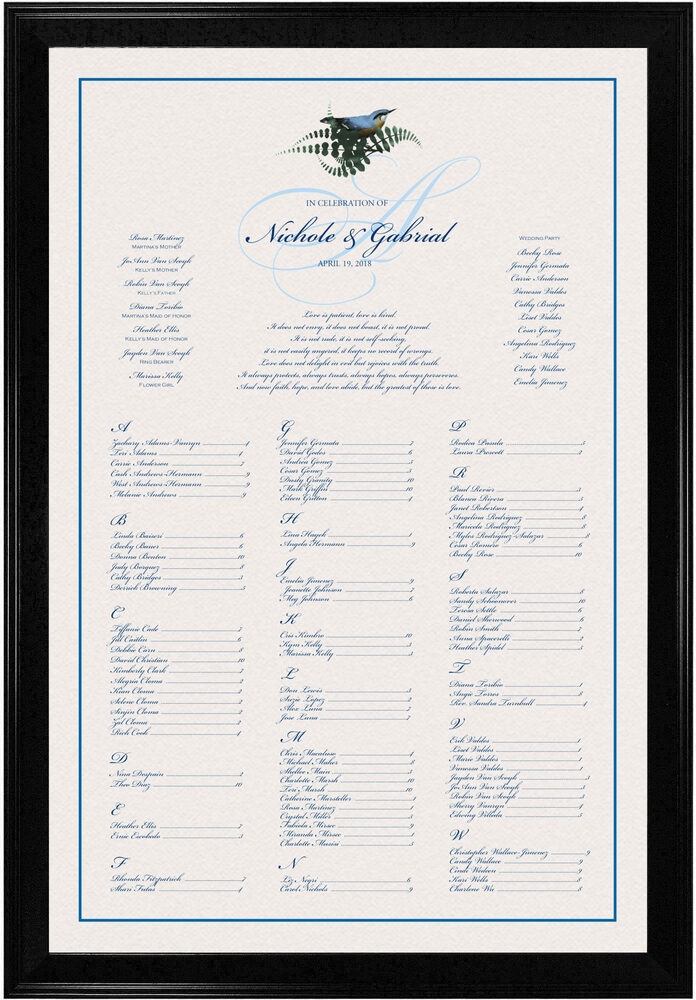 IN CELEBRATION OF
Nichole & Gabrial
APRIL 19, 2018
Rosa Martinez
MARTINA'S MOTHER
JoAnn Van Seegh
KELLY'S MOTHER
Robin Van Seegh
KELLY'S FATHER
Diana Toribio
MARTINA'S MAID OF HONOR
Heather Ellis
KELLY'S MAID OF HONOR
Jayden Van Seegh
RING BEARER
Marissa Kelly
FLOWER GIRL
Love is patient, love is kind.
It does not envy, it does not boast, it is not proud.
It is not rude, it is not self-seeking,
it is not easily angered, it keeps no record of wrongs.
Love does not delight in evil but rejoices with the truth.
It always protects, always trusts, always hopes, always perseveres.
And now faith, hope, and love abide, but the greatest of these is love.
WEDDING PARTY
Becky Rose
Jennifer Germata
Carrie Anderson
Vanessa Valdes
Cathy Bridges
Liset Valdes
Cesar Gomez
Angelina Rodriguez
Kari Wells
Candy Wallace
Emelia Jimenez
A
Zachary Adams-Vanryn 4
Teri Adams 4
Carrie Anderson 7
Cash Andrews-Hermann 9
West Andrews-Hermann 9
Melanie Andrews 9
B
Linda Basseri 6
Becky Bauer 6
Donna Benton 10
Judy Borquez 8
Cathy Bridges 3
Derrick Browning 5
C
Tiffanie Cade 7
Jill Caitlin 6
Debbie Carn 8
David Christian 10
Kimberly Clark 2
Alegria Cloma 2
Kian Cloma 2
Selene Cloma 2
Sinjin Cloma 2
Zal Cloma 2
Rich Cook 4
D
Nina Despain 2
Theo Diaz 10
E
Heather Ellis 7
Ernie Escobedo 3
F
Rhonda Fitzpatrick 7
Shari Futas 4
G
Jennifer Germata 7
David Godos 6
Andrea Gomez 5
Cesar Gomez
Dusty Granity 10
Mark Griffin 10
Eileen Gritton 4
H
Lina Hayek 1
Angela Hermann 9
J
Emelia Jimenez 9
Jeanette Johnson 7
Meg Johnson 6
K
Cris Kimbro 10
Kym Kelly 5
Marissa Kelly 5
L
Don Lewis 3
Suzie Lopez 7
Alex Luna 7
Jose Luna 7
M
Chris Macaluso 4
Michael Maher 8
Shyllee Main 3
Charlotte Marsh 10
Teri Marsh 10
Catherine Marsteller 1
Rosa Martinez 1
Crystal Miller 5
Fabiola Mirsee 9
Miranda Mirsee 1
Charlotte Musisi 5
N
Liz Negri 6
Carol Nichols 9
P
Rodica Pasula 5
Laura Prescott 3
R
Paul Revier 3
Blanca Rivera 5
Janet Robertson 4
Angelina Rodriguez 8
Maricela Rodriguez 8
Myles Rodriguez-Salazar 8
Cesar Romero 6
Becky Rose 10
S
Roberta Salazar 8
Sandy Schoonover 10
Teresa Settle 6
Daniel Sherwood 6
Robin Smith 7
Anna Spacerelli 2
Heather Spidel 5
T
Diana Toribio 1
Angie Torres 8
Rev. Sandra Turnbull 4
V
Erik Valdes 1
Liset Valdes 1
Marie Valdes 1
Vanessa Valdes 1
Jayden Van Seegh 3
JoAnn Van Seegh 3
Robin Van Seegh 3
Sherry Vanryn 4
Edwing Villada 5
W
Christopher Wallace-Jimenez 9
Candy Wallace 9
Cindi Wedeen 9
Kari Wells 8
Charlene Wu 5